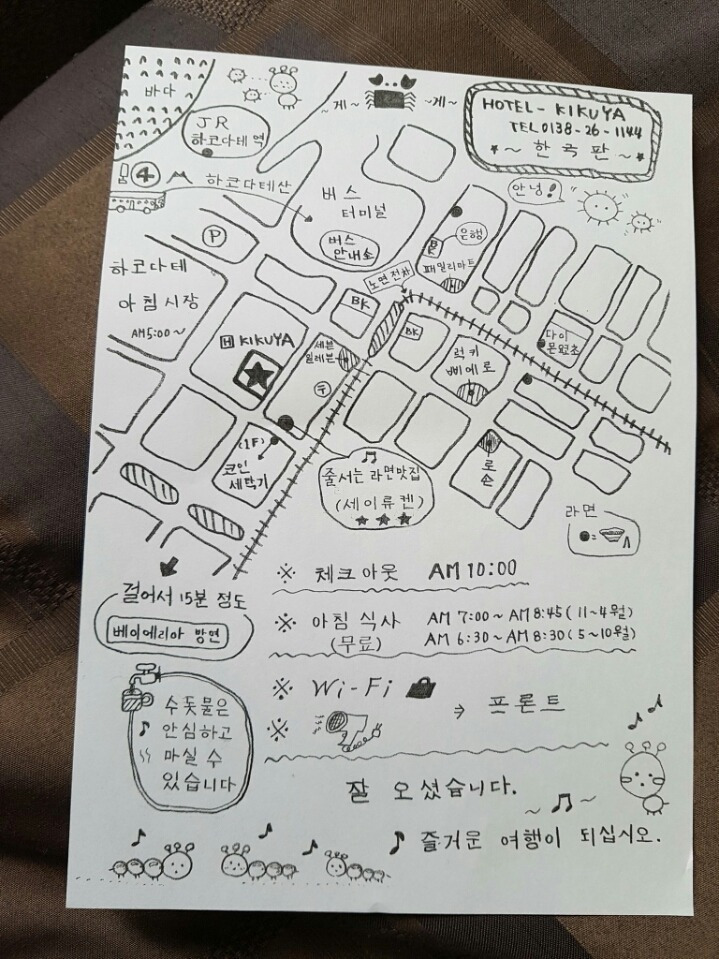 바다
JR
하코다테 역
~게~
~게~
HOTEL - KIKUYA
TEL 0138-26-1144
★~ 한국판 ~★
안녕!
4
하코다테산
버스
터미널
버스
안내소
P
BK
은행
패밀리마트
노면전차
하코다테
아침시장
AM5:00~
H KIKUYA
BK
BK
세븐
일레븐
〒
럭키
삐에로
다이
몬요코쵸
(1F)
코인
세탁기
줄서는 라면맛집
(세이류켄)
★ ★ ★
로손
라면
● =
걸어서 15분 정도
베이에리아 방면
※ 체크아웃 AM 10:00
※ 아침 식사 AM 7:00~ AM 8:45 (11~4월)
(무료) AM 6:30~ AM 8:30 (5~10월)
※ Wi-Fi
※ ⇒ 프론트
수돗물은
안심하고
마실 수
있습니다
잘 오셨습니다.
즐거운 여행이 되십시오.